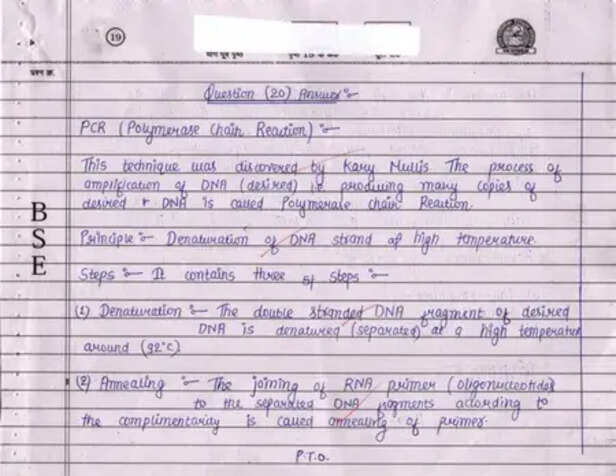 19
प्रश्न क्र.
Question (20) Answer :-
PCR (Polymerase Chain Reaction) :-
This technique was discovered by Kary Mullis. The process of
amplification of DNA (desired) i.e. producing many copies of
desired DNA is called Polymerase Chain Reaction.
Principle :- Denaturation of DNA strand at high temperature.
Steps :- It contains three steps :-
(1) Denaturation :- The double stranded DNA fragment of desired
DNA is denatured (separated) at a high temperature
around (92°C)
(2) Annealing :- The joining of RNA primer (oligonucleotides
to the separated DNA fragments according to
the complimentarity is called annealing of primer.
P.T.O.
B
S
E